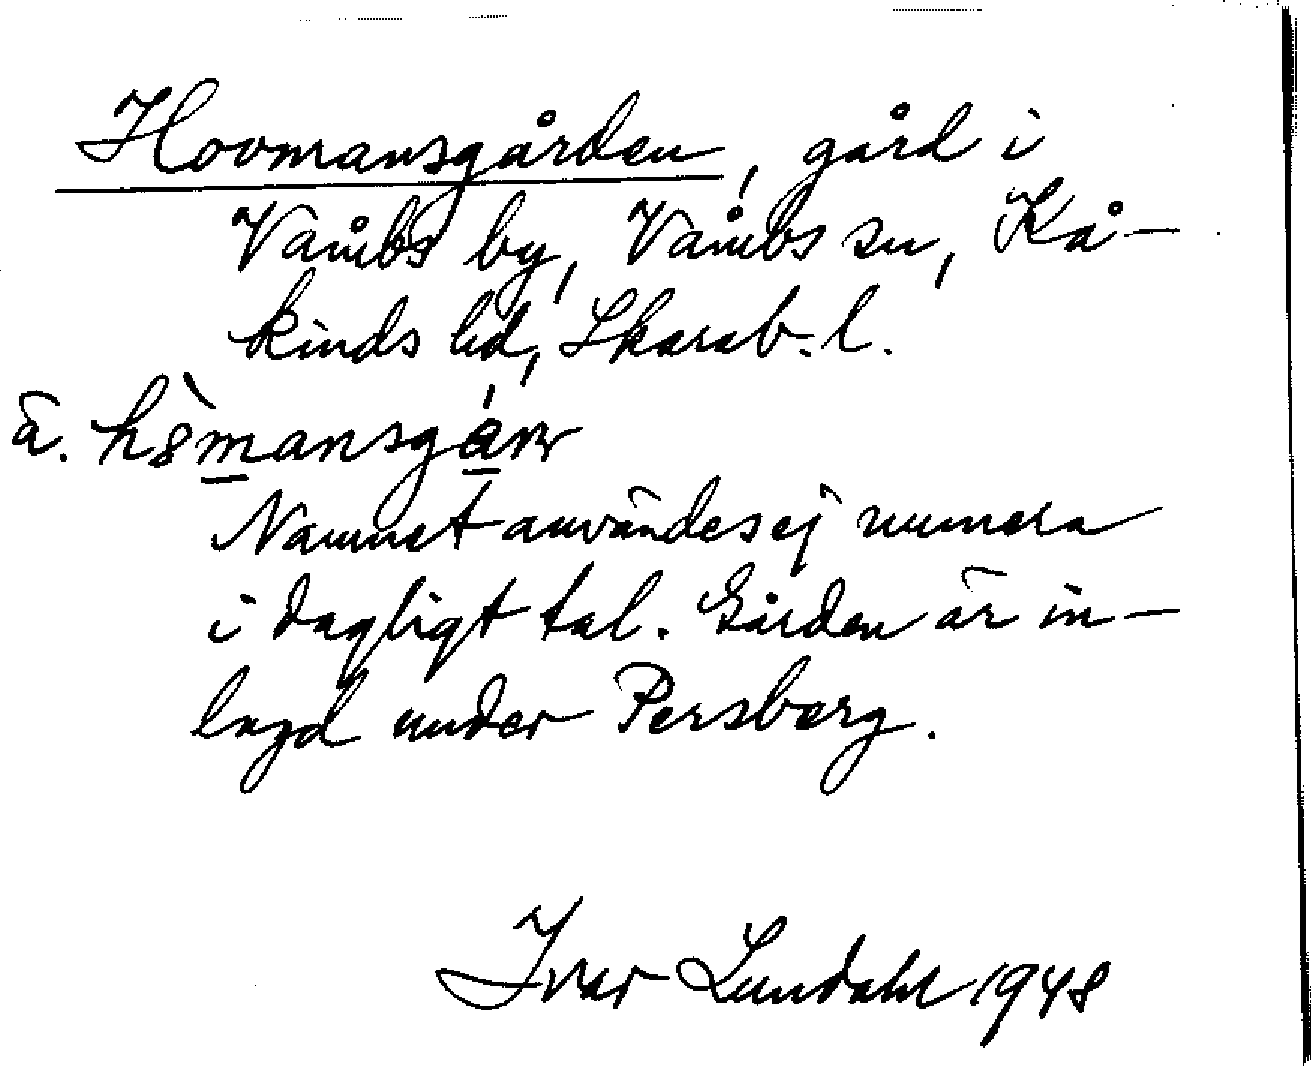 Hovmansgården, gård i
Våmbs by, Våmbs sn, Kå-
kinds hd, Skarab. l.
ä.
Namnet användes ej numera
i dagligt tal. Gården är in-
lagd under Persberg.
Ivar Lundahl 1948